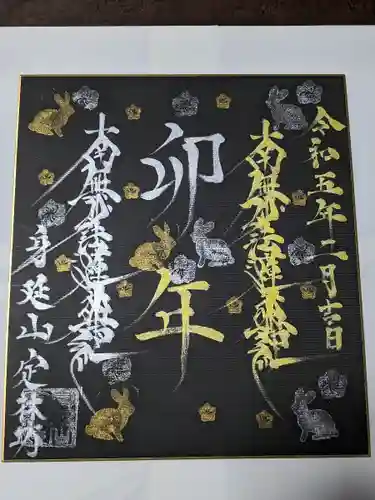 令和五年二月吉日
南無妙法蓮華経
卯年
南無妙法蓮華経
身延山 定林坊